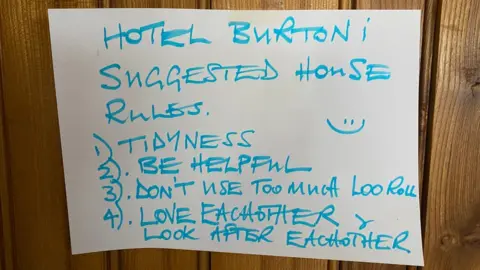 HOTEL BURTON!
SUGGESTED HOUSE
RULES.
1) TIDYNESS
2). BE HELPFUL
3). DON'T USE TOO MUCH LOO ROLL
4). LOVE EACHOTHER &
LOOK AFTER EACHOTHER